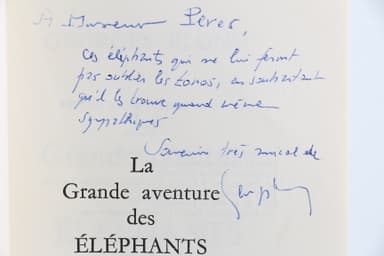 A Monsieur Pérès,
ces éléphants qui ne lui feront
pas oublier les toros, en souhaitant
qu'il les trouve quand même
sympathiques
Souvenir très amical de
La
Grande aventure
des
ÉLÉPHANTS